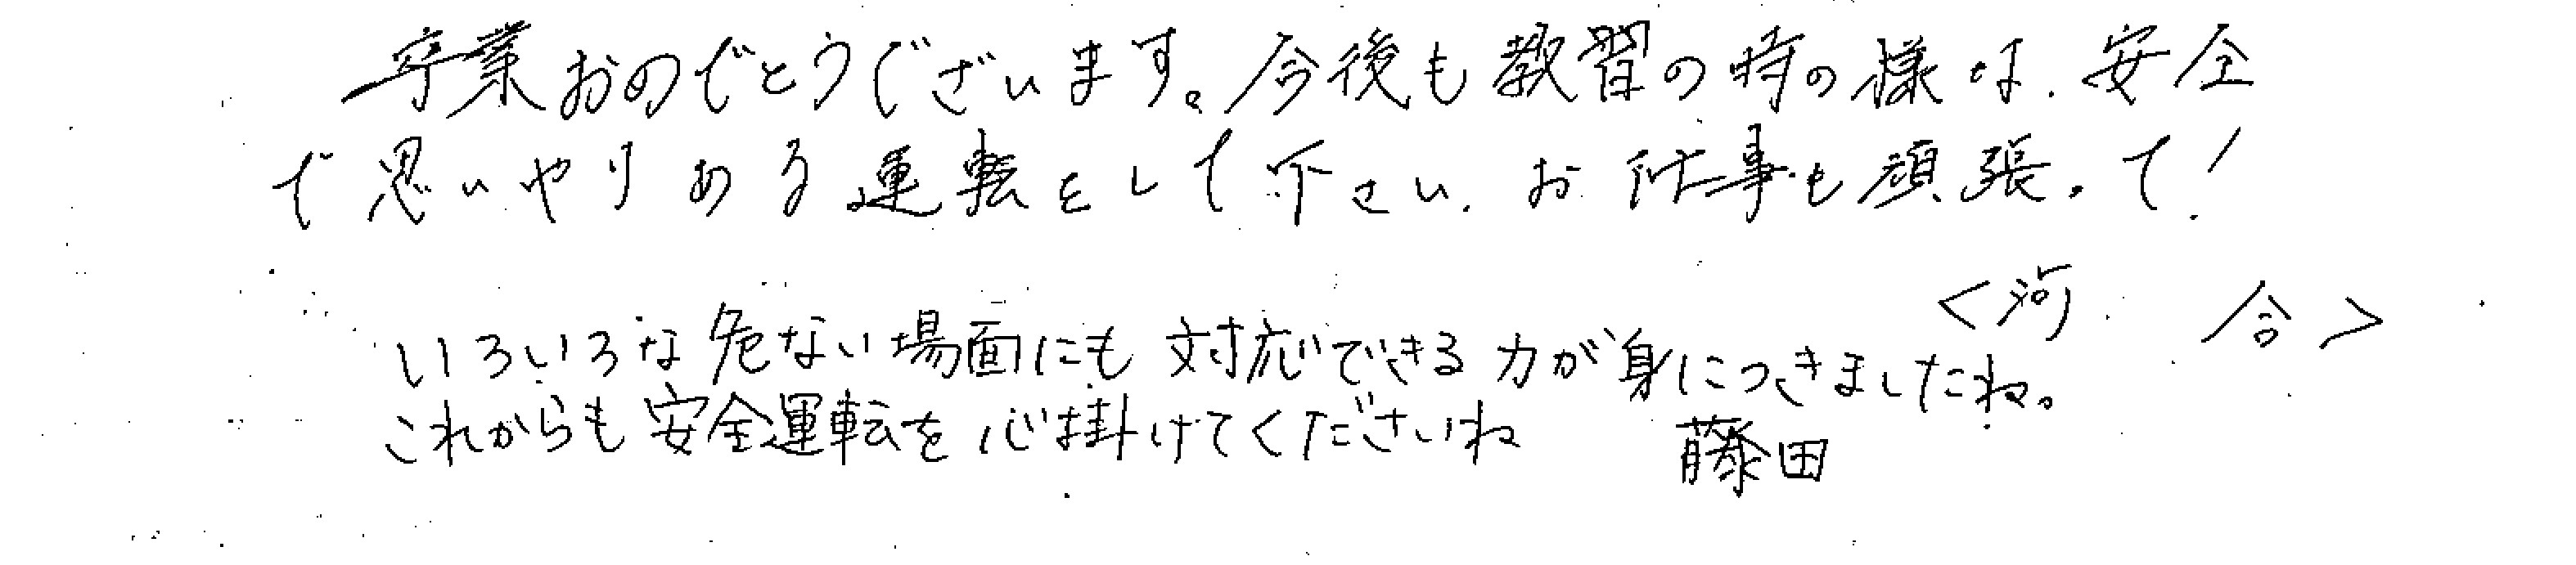 卒業おめでとうございます。今後も教習の時の様な、安全
で思いやりある運転をして下さい。お仕事も頑張って!
<河 合>
いろいろな危ない場面にも対応できる力が身につきましたね。
これからも安全運転を心掛けてくださいね 藤田